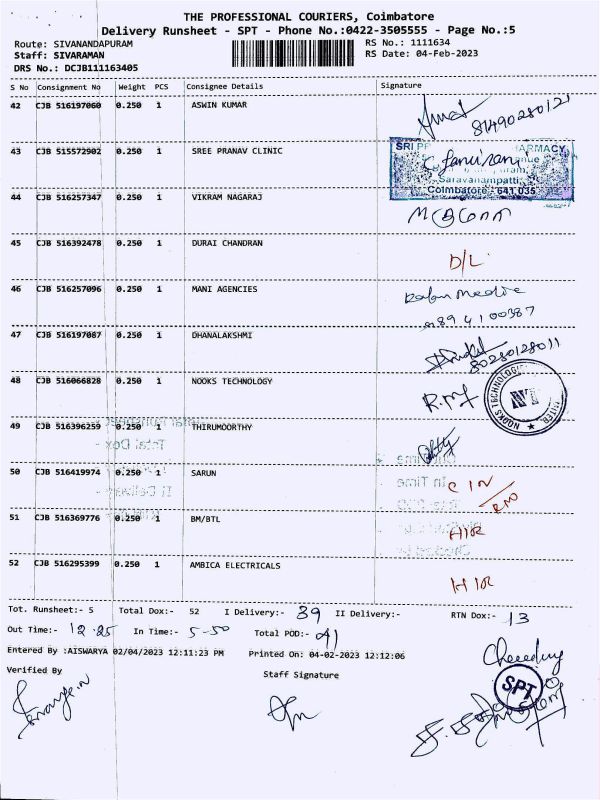 THE PROFESSIONAL COURIERS, Coimbatore
Delivery Runsheet - SPT - Phone No.:0422-3505555 - Page No.:5
Route: SIVANANDAPURAM RS No.: 1111634
Staff: SIVARAMAN RS Date: 04-Feb-2023
DRS No.: DCJB111163405
S No Consignment No Weight PCS Consignee Details Signature
42 CJB 516197060 0.250 1 ASWIN KUMAR
43 CJB 515572902 0.250 1 SREE PRANAV CLINIC
SRI ARMACY
Saravanampatti
Coimbatore - 641 035
44 CJB 516257347 0.250 1 VIKRAM NAGARAJ
45 CJB 516392478 0.250 1 DURAI CHANDRAN D/L
46 CJB 516257096 0.250 1 MANI AGENCIES
47 CJB 516197087 0.250 1 DHANALAKSHMI
80280128011
48 CJB 516066828 0.250 1 NOOKS TECHNOLOGY
NOOKS TECHNOLOGIES NT LIMITED
49 CJB 516396259 0.250 1 THIRUMOORTHY
50 CJB 516419974 0.250 1 SARUN
51 CJB 516369776 0.250 1 BM/BTL
52 CJB 516295399 0.250 1 AMBICA ELECTRICALS
Tot. Runsheet:- 5 Total Dox:- 52 I Delivery:- 39 II Delivery:- RTN Dox:- 13
Out Time:- 12.25 In Time:- 5-50 Total POD:- 41
Entered By :AISWARYA 02/04/2023 12:11:23 PM Printed On: 04-02-2023 12:12:06
Verified By Staff Signature
SPT